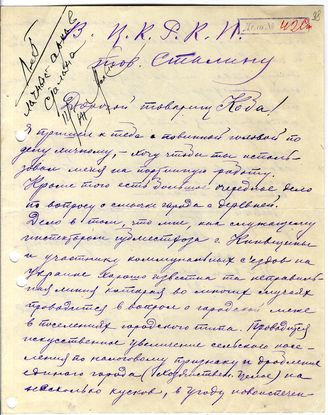 Дело № 420
98
В. Ц.К.Р.К.И.
тов. Сталину
Личное архив
Сталина
Дорогой товарищ Коба!
Я пришел к тебе с повинной головой по
делу личному, – хочу чтобы ты исполь-
зовал меня на партийную работу.
Кроме того есть большое очередное дело
по вопросу о смычке города с деревней.
Дело в том, что мне, как служащему
инспектором г.
и участнику коммунальных с'ездов на
Украине хорошо известна та неправиль-
ная линия которая во многих случаях
проводится в вопросе о городской меже
в поселениях городского типа. Проводится
искусственное увеличение сельского насе-
ления по налоговому признаку и дробление
единого города (хозяйственн. целое) на
несколько кусков, в угоду новоиспечен